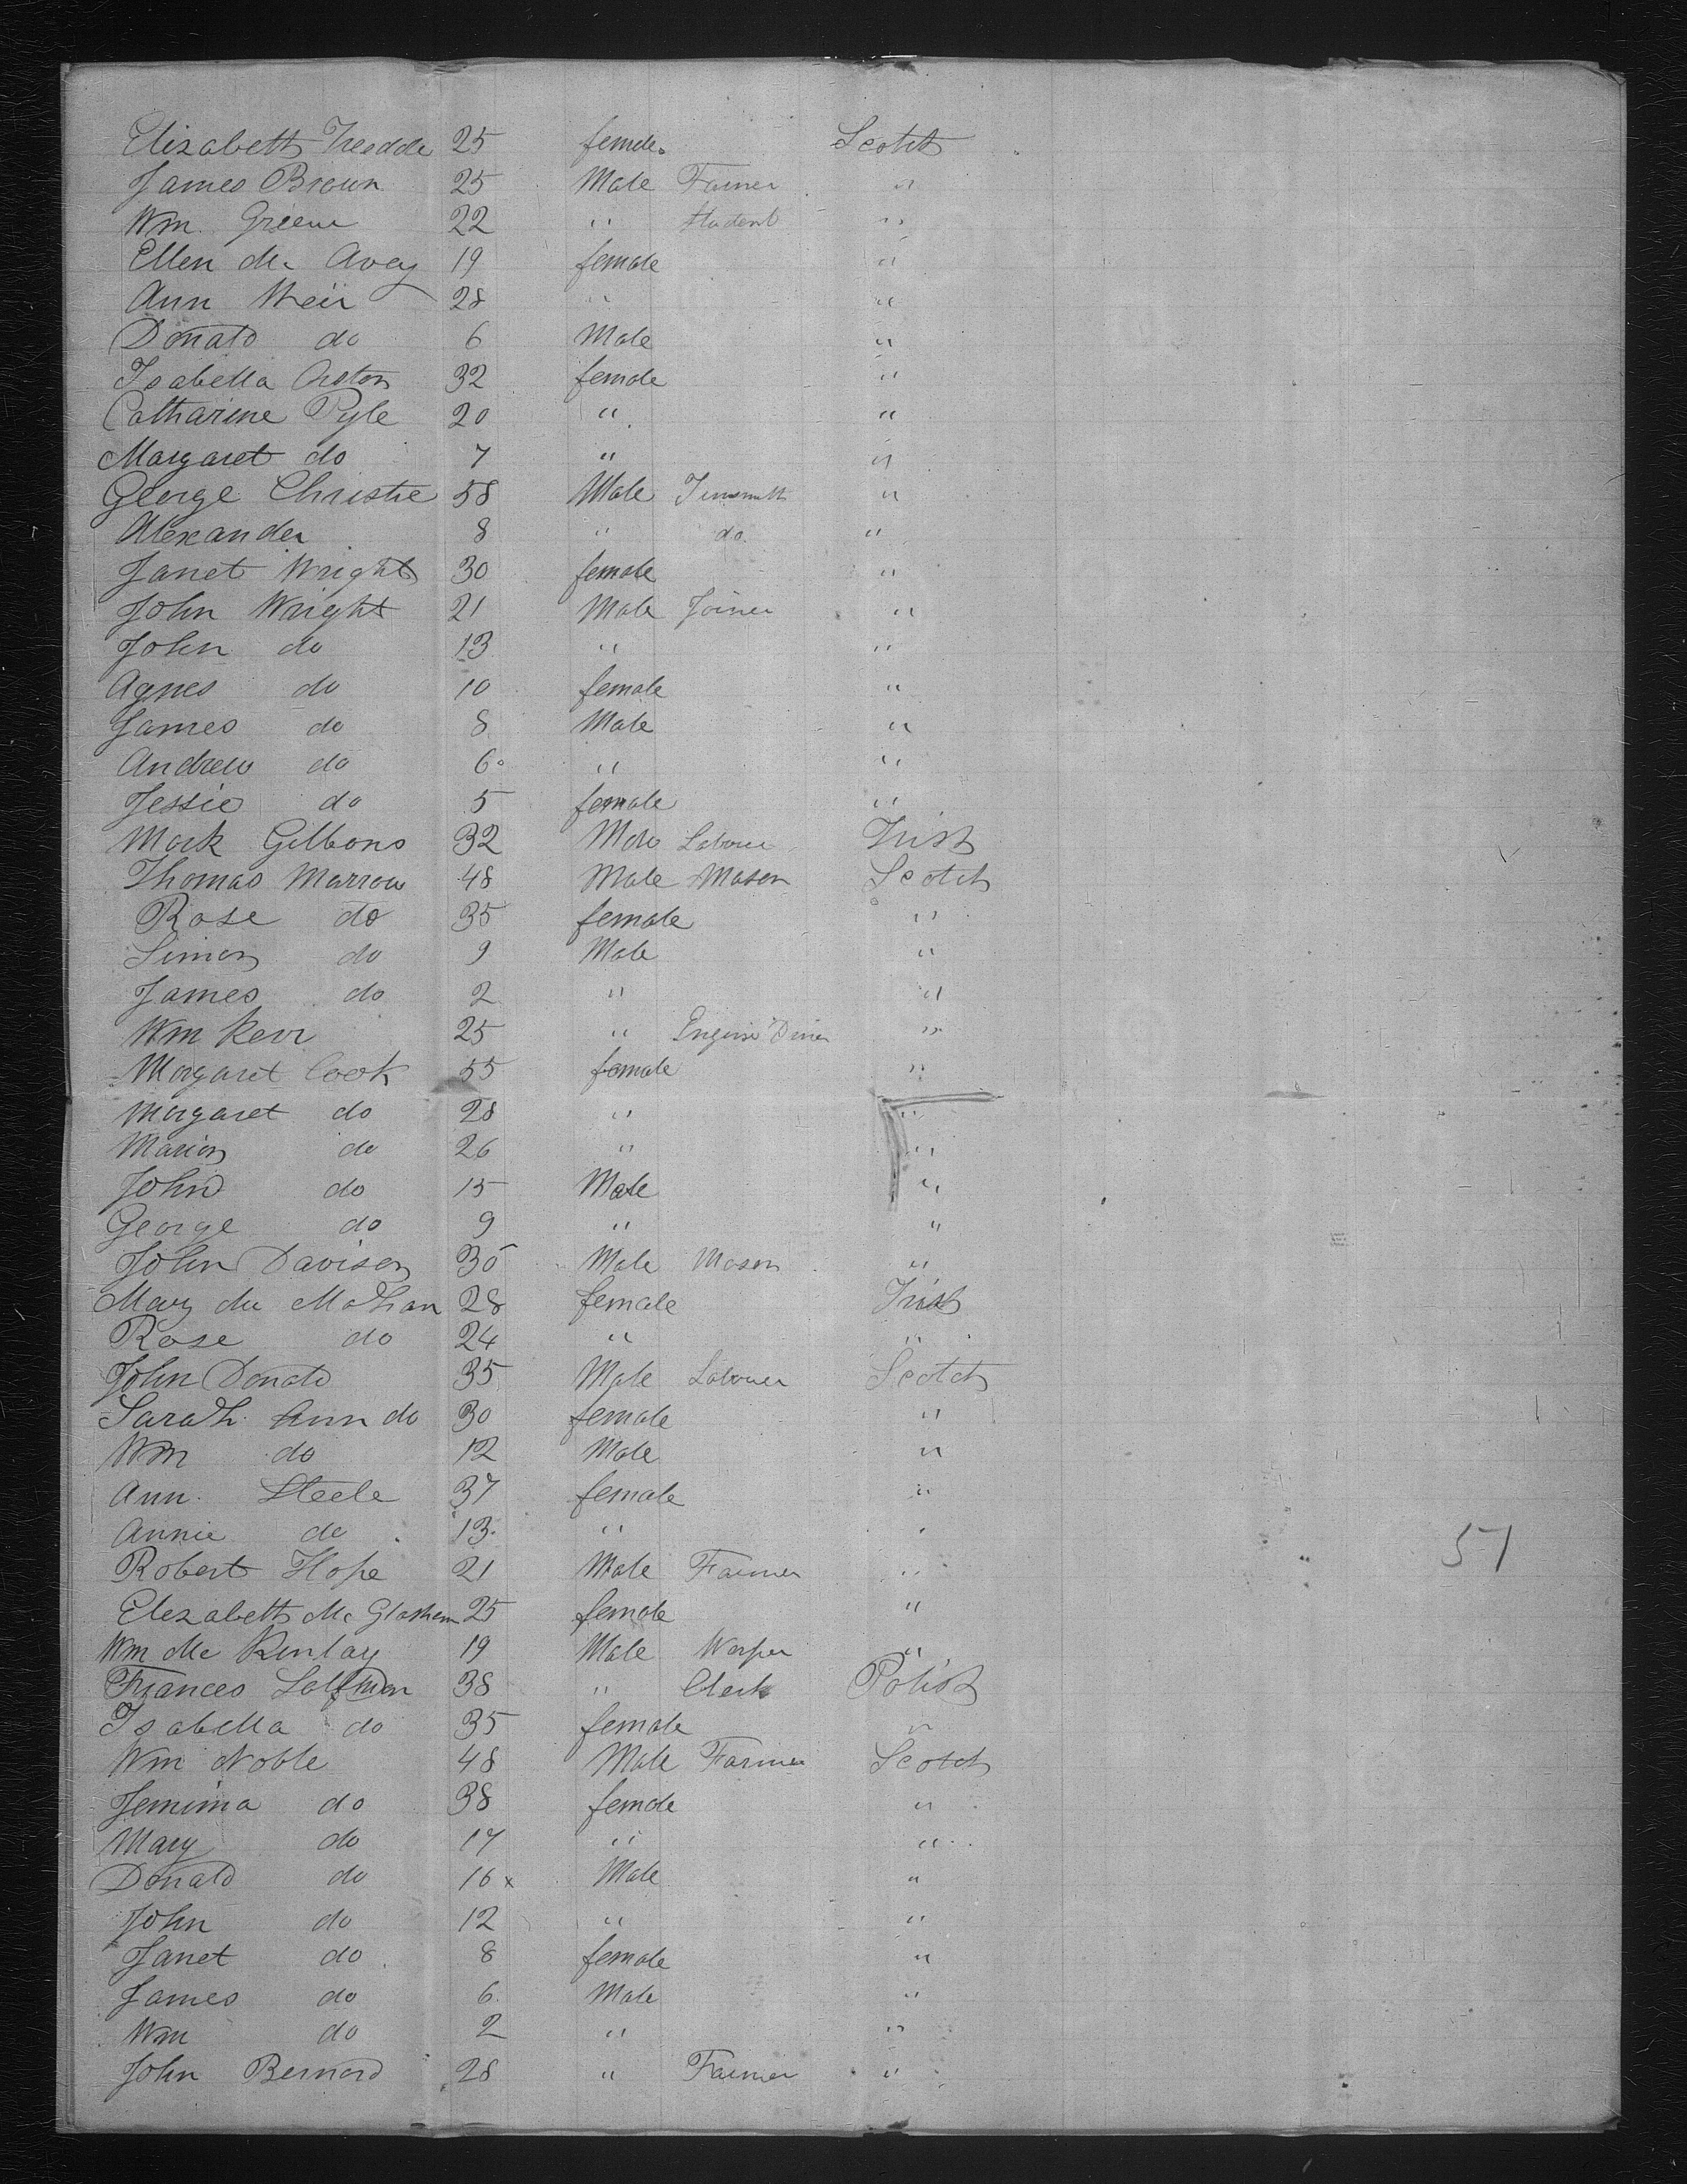 Elizabeth 25 female Scotch
James Brown 25 Male Farmer "
Wm. Greene 22 " Student "
Ellen Mc Avey 19 female "
Ann Weir 28 " "
Donald do 6 Male "
Isabella 32 female "
Catharine Pyle 20 " "
Margaret do 7 " "
George Christie 58 Male Tinsmith "
Alexander 8 " do. "
Janet Wright 30 female "
John Wright 21 Male Joiner "
John do 13 " "
Agnes do 10 female "
James do 8 Male "
Andrew do 6 " "
Jessie do 5 female "
Mark Gibbons 32 Male Labourer Irish
Thomas Marrow 48 Male Mason Scotch
Rose do 35 female "
Simon do 9 Male "
James do 2 " "
Wm Kerr 25 " Engine Driver "
Margaret Cook 55 female "
Margaret do 28 " "
Marion do 26 " "
John do 15 Male "
George do 9 " "
John Davison 30 Male Mason "
Mary Mc Mahan 28 female Irish
Rose do 24 " "
John Donald 35 Male Labourer Scotch
Sarah Ann do 30 female "
Wm do 12 Male "
Ann. Steele 37 female "
Annie do 13 " "
51
Robert Hope 21 Male Farmer "
Elezabeth Mc Glashen 25 female "
Wm Mc Kinlay 19 Male Warper "
Frances 38 " Clerk Polish
Isabella do 35 female "
Wm Noble 48 Male Farmer Scotch
Jemima do 38 female "
Mary do 17 " "
Donald do 16 x Male "
John do 12 " "
Janet do 8 female "
James do 6 Male "
Wm do 2 " "
John Bernard 28 " Farmer "